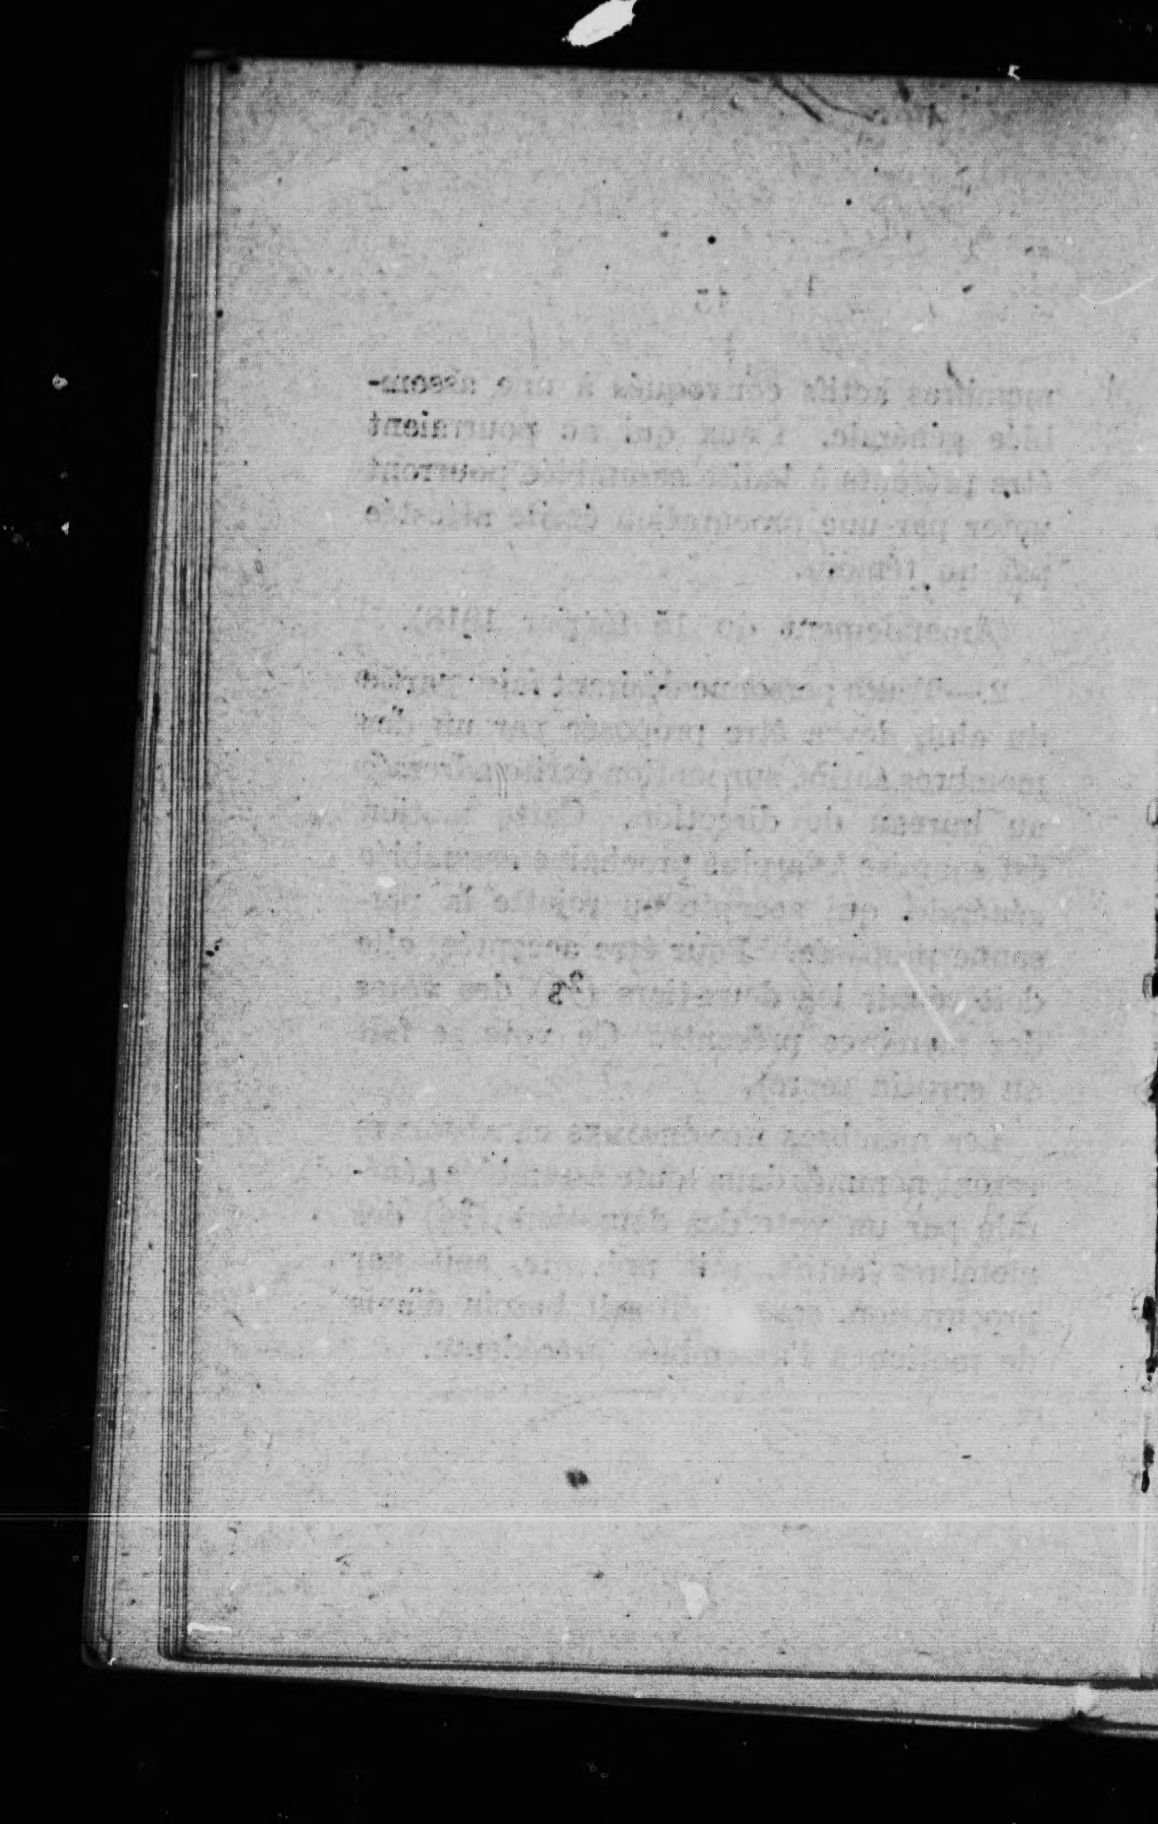 15
membres actifs convoqués à une assem-
blée générale. Ceux qui ne pourraient
être présents à ladite assemblée pourront
voter par une procuration écrite attestée
par un témoin.
(Amendement du 15 février 1918).
2.—Toute personne désirant faire partie
du club, devra être proposée par un des
membres actifs, sur motion écrite adressée
au bureau de direction. Cette motion
est soumise à la plus prochaine assemblée
générale, qui accepte ou rejette la per-
sonne proposée. Pour être acceptée, elle
doit réunir les deux tiers (⅔) des votes
des membres présents. Ce vote se fait
au scrutin secret.
Les membres
seront nommés dans toute assemblée géné-
rale par un vote des deux tiers (⅔) des
membres actifs, soit présents, soit par
procuration, sans qu'il soit besoin d'avis
de motion à l'assemblée précédente.